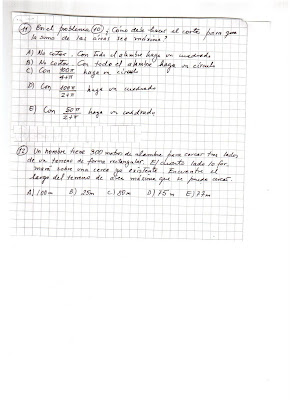 11) En el problema (10) ¿Cómo debe hacer el corte para que
la suma de las áreas sea máxima?
A) No cortar. Con todo el alambre haga un cuadrado
B) No cortar. Con todo el alambre haga un círculo
C) Con 100π/4+π haga un círculo
D) Con 100π/2+π haga un cuadrado
E) Con 50π/2+π haga un cuadrado
12) Un hombre tiene 300 metros de alambre para cercar tres lados
de un terreno de forma rectangular. El cuarto lado lo for-
mará sobre una cerca ya existente. Encuentre el
largo del terreno de área máxima que se puede cercar.
A) 100m B) 25m C) 80m D) 75m E) 77m